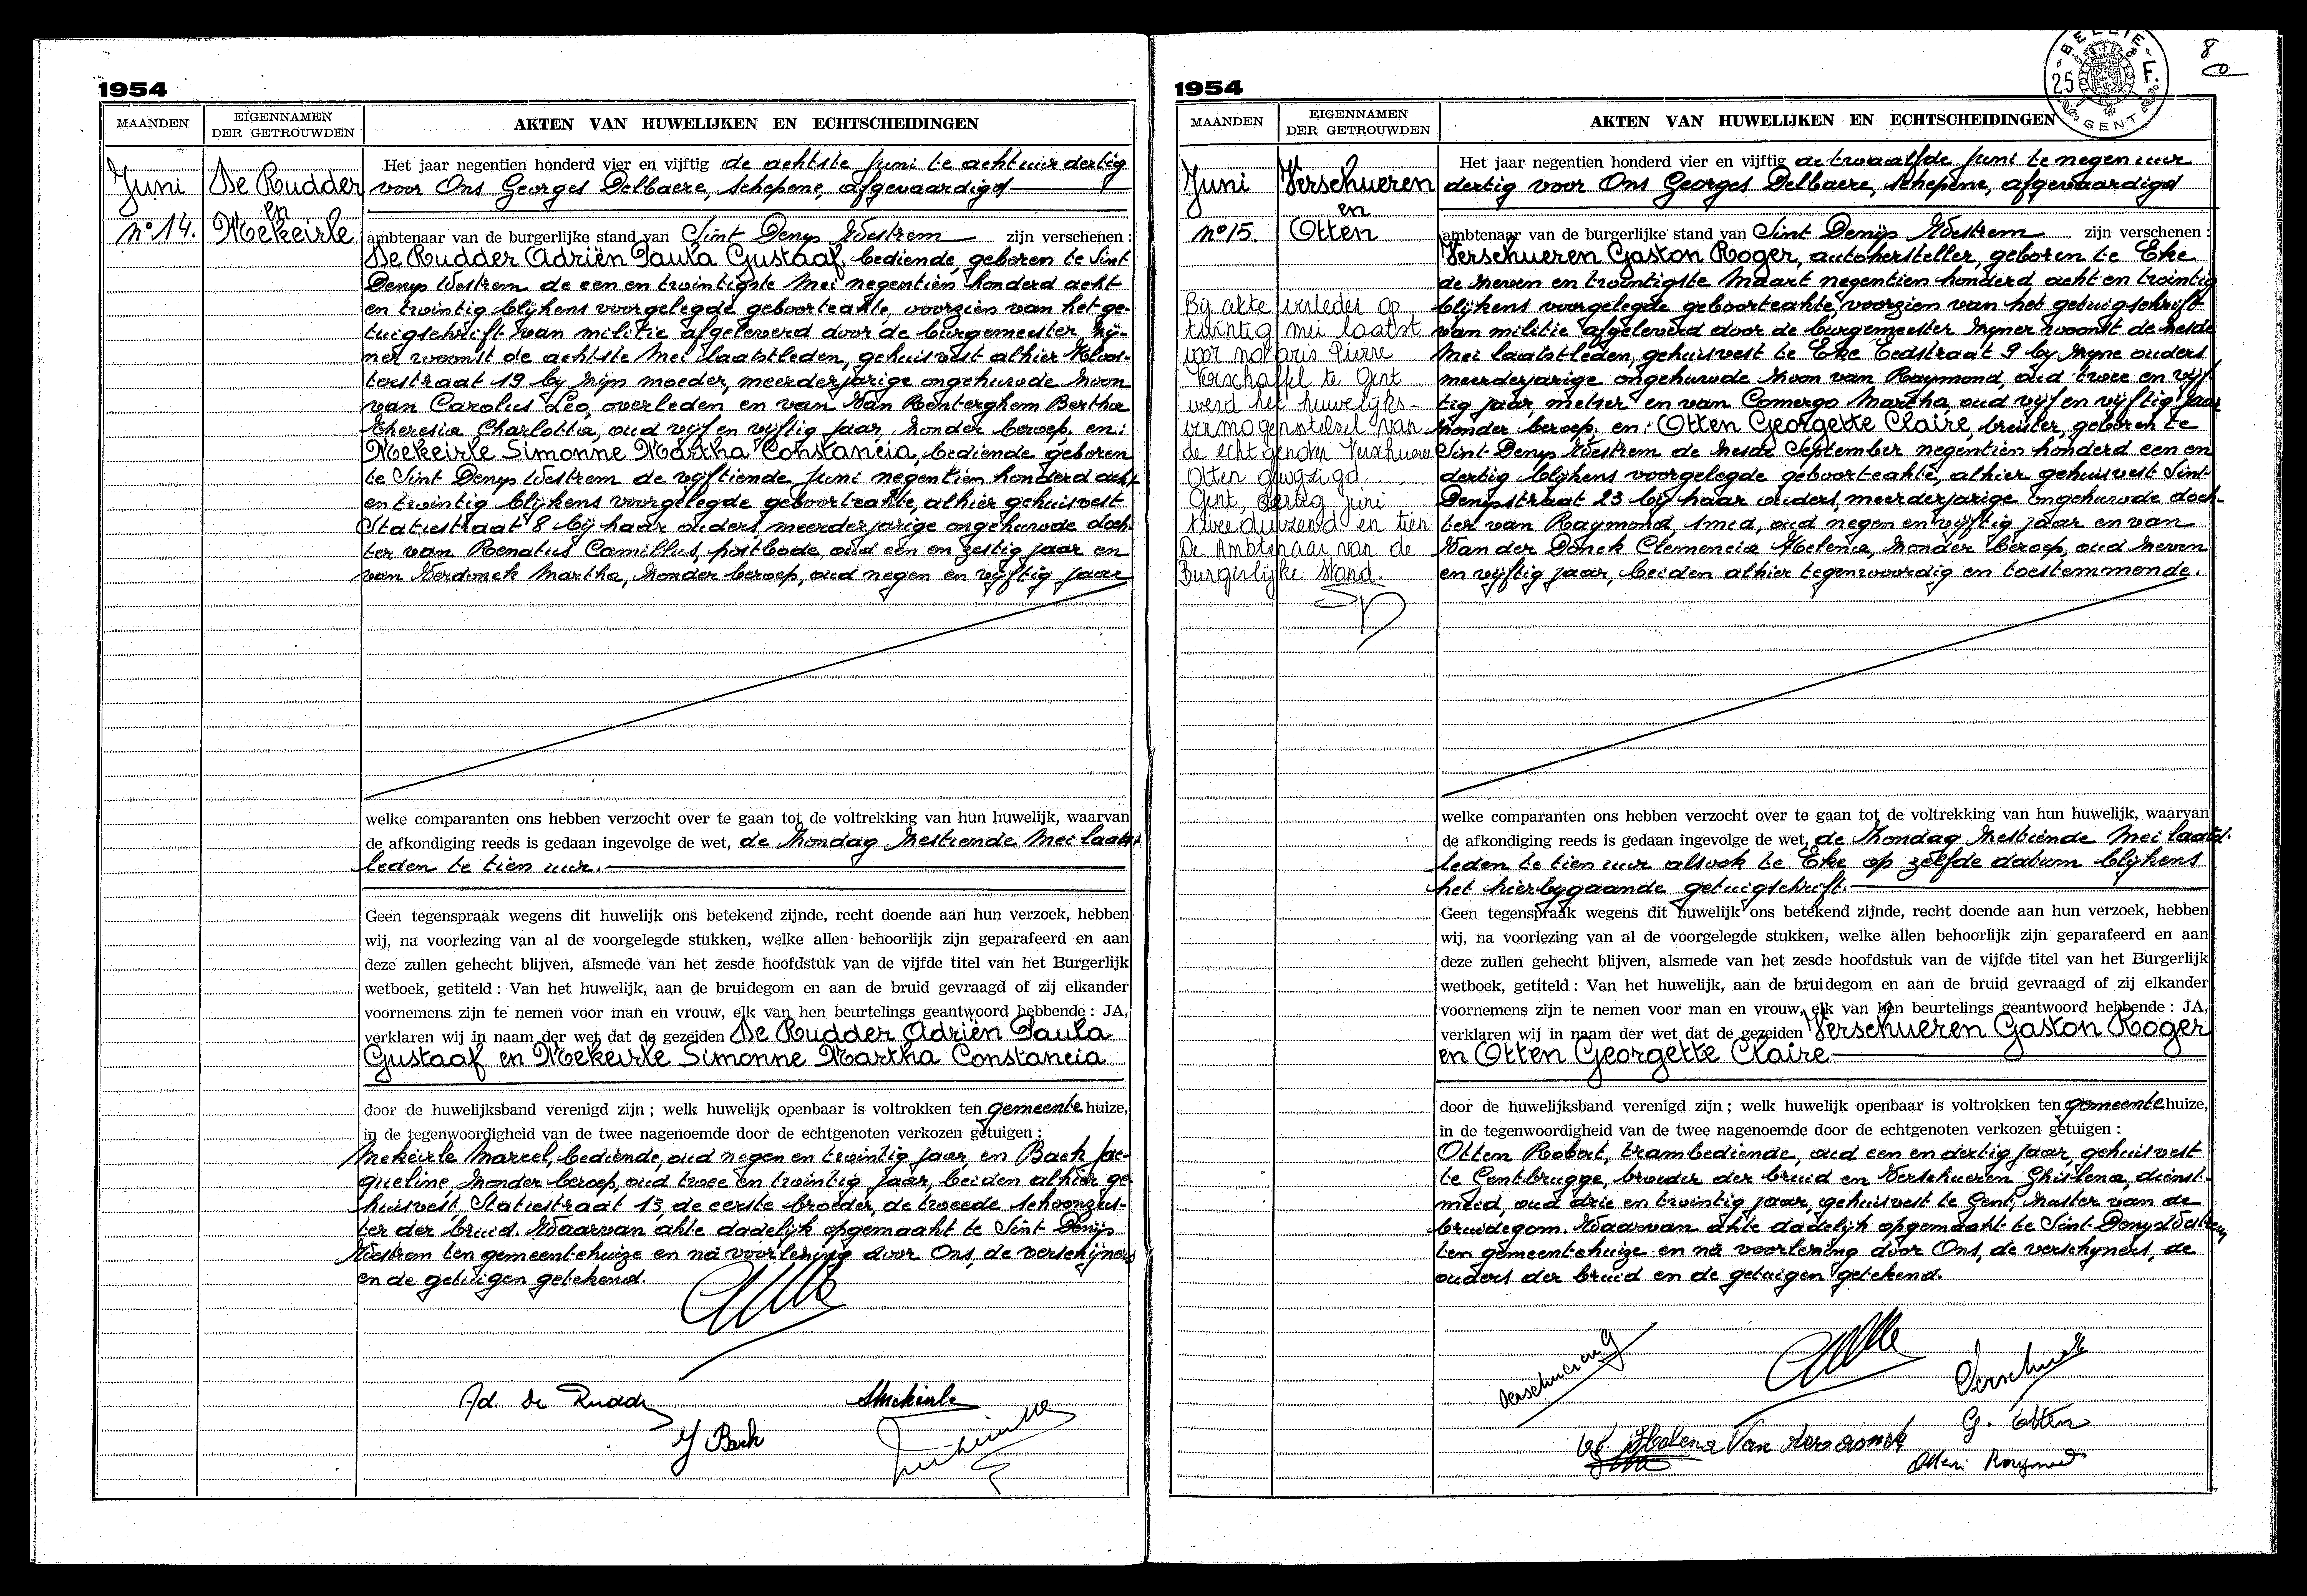 1954
MAANDEN
EIGENNAMEN
DER GETROUWDEN
AKTEN VAN HUWELIJKEN EN ECHTSCHEIDINGEN
Juni
De Rudder
en
Mekeirle
n° 14.
Het jaar negentien honderd vier en vijftig de achtste Juni te acht uur dertig
voor Ons Georges Delbaere, schepene, afgevaardigd
ambtenaar van de burgerlijke stand van Sint Denys Westrem zijn verschenen :
De Rudder Adriën Paula Gustaaf, bediende, geboren te Sint
Denys Westrem de een en twintigste Mei negentien honderd acht
en twintig blijkens voorgelegde geboorteakte, voorzien van het ge-
tuigschrift van militie afgeleverd door de burgemeester zij-
ner woonst de achtste Mei laatstleden, gehuisvest alhier Kloos-
terstraat 19 by zijn moeder, meerderjarige ongehuwde zoon
van Carolus Leo, overleden en van Van Renterghem Bertha
Theresia Charlottia, oud vijf en vijftig jaar, zonder beroep, en:
Mekeirle Simonne Martha Constancia, bediende, geboren
te Sint Denys Westrem de vijftiende Juni negentien honderd acht
en twintig blijkens voorgelegde geboorteakte, alhier gehuisvest
Statiestraat 8 bij haar ouders, meerderjarige ongehuwde doch-
ter van Renatus Camillus, postbode, oud een en zestig jaar en
van Verdonck Martha, zonder beroep, oud negen en vijftig jaar
welke comparanten ons hebben verzocht over te gaan tot de voltrekking van hun huwelijk, waarvan
de afkondiging reeds is gedaan ingevolge de wet, de Zondag zestiende Mei laatst-
leden te tien uur.
Geen tegenspraak wegens dit huwelijk ons betekend zijnde, recht doende aan hun verzoek, hebben
wij, na voorlezing van al de voorgelegde stukken, welke allen behoorlijk zijn geparafeerd en aan
deze zullen gehecht blijven, alsmede van het zesde hoofdstuk van de vijfde titel van het Burgerlijk
wetboek, getiteld : Van het huwelijk, aan de bruidegom en aan de bruid gevraagd of zij elkander
voornemens zijn te nemen voor man en vrouw, elk van hen beurtelings geantwoord hebbende : JA,
verklaren wij in naam der wet dat de gezeiden De Rudder Adriën Paula
Gustaaf en Mekeirle Simonne Martha Constancia
door de huwelijksband verenigd zijn ; welk huwelijk openbaar is voltrokken ten gemeente huize,
in de tegenwoordigheid van de twee nagenoemde door de echtgenoten verkozen getuigen :
Mekeirle Marcel, bediende, oud negen en twintig jaar, en Back Jac-
queline zonder beroep, oud twee en twintig jaar, beiden alhier ge-
huisvest, Statiestraat 13, de eerste broeder, de tweede schoonzus-
ter der bruid. Waarvan akte dadelijk opgemaakt te Sint Denys
Westrem ten gemeentehuize en na voorlezing door Ons, de verschijners
en de getuigen getekend.
Ad. De Rudder
SMekeirle
J Back
1954
BELGIE
25 F.
GENT
8
MAANDEN
EIGENNAMEN
DER GETROUWDEN
AKTEN VAN HUWELIJKEN EN ECHTSCHEIDINGEN
Juni
Verschueren
en
Otten
n° 15.
Bij akte verleden op
twintig mei laatst
voor notaris Pierre
Verschaffel te Gent
werd het huwelijks-
vermogenstelsel van
de echtgenoten Verschueren
Otten gewijzigd.
Gent, dertig juni
tweeduizend en tien
De Ambtenaar van de
Burgerlijke Stand.
Het jaar negentien honderd vier en vijftig de twaalfde Juni te negen uur
dertig voor Ons Georges Delbaere, schepene, afgevaardigd
ambtenaar van de burgerlijke stand van Sint Denijs Westrem zijn verschenen :
Verschueren Gaston Roger, autohersteller, geboren te Eke
de zeven en twintigste Maart negentien honderd acht en twintig
blijkens voorgelegde geboorteakte, voorzien van het getuigschrift
van militie afgeleverd door de burgemeester zyner woonst de zesde
Mei laatstleden, gehuisvest te Eke Eedstraat 9 by zyne ouders
meerderjarige ongehuwde zoon van Raymond, oud twee en vijf-
tig jaar, metser en van Comergo Martha, oud vijf en vijftig jaar
zonder beroep, en: Otten Georgette Claire, breister, geboren te
Sint Denys Westrem de zesde September negentien honderd een en
dertig blijkens voorgelegde geboorteakte, alhier gehuisvest Sint-
Denysstraat 23 bij haar ouders, meerderjarige ongehuwde doch-
ter van Raymond, smid, oud negen en vijftig jaar en van
Van der Donck Clemencia Helena, zonder beroep, oud zeven
en vijftig jaar, beiden alhier tegenwoordig en toestemmende.
welke comparanten ons hebben verzocht over te gaan tot de voltrekking van hun huwelijk, waarvan
de afkondiging reeds is gedaan ingevolge de wet, de Zondag zestiende Mei laatst-
leden te tien uur alsook te Eke op zelfde datum blijkens
het hierbygaande getuigschrift.
Geen tegenspraak wegens dit huwelijk ons betekend zijnde, recht doende aan hun verzoek, hebben
wij, na voorlezing van al de voorgelegde stukken, welke allen behoorlijk zijn geparafeerd en aan
deze zullen gehecht blijven, alsmede van het zesde hoofdstuk van de vijfde titel van het Burgerlijk
wetboek, getiteld : Van het huwelijk, aan de bruidegom en aan de bruid gevraagd of zij elkander
voornemens zijn te nemen voor man en vrouw, elk van hen beurtelings geantwoord hebbende : JA,
verklaren wij in naam der wet dat de gezeiden Verschueren Gaston Roger
en Otten Georgette Claire
door de huwelijksband verenigd zijn ; welk huwelijk openbaar is voltrokken ten gemeente huize,
in de tegenwoordigheid van de twee nagenoemde door de echtgenoten verkozen getuigen :
Otten Robert, trambediende, oud een en dertig jaar, gehuisvest
te Gentbrugge, broeder der bruid en Verschueren Ghislena, dienst-
meid, oud drie en twintig jaar, gehuisvest te Gent, zuster van de
bruidegom. Waarvan akte dadelijk opgemaakt te Sint Denys Westrem
ten gemeentehuize en na voorlezing door Ons, de verschyners, de
ouders der bruid en de getuigen getekend.
Verschueren G
G. Otten
Helena Van der donck
Otten Raymond